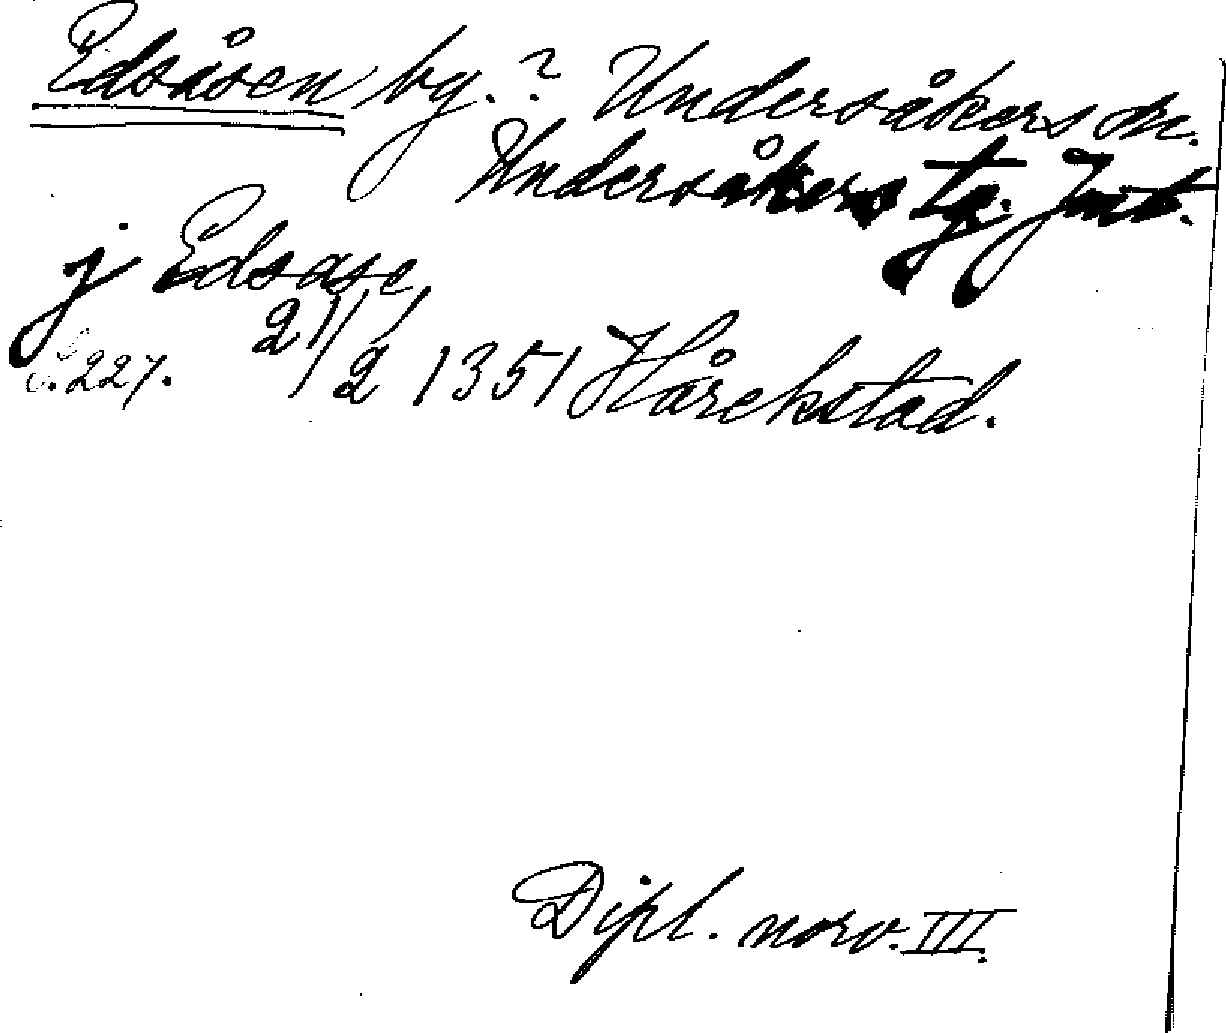 Edsåsen by.? Undersåkers sn.
Undersåkers tg. Jmt.
j Edsase,
21/2 1351 Hårekstad.
s. 227.
Dipl. norv. III.